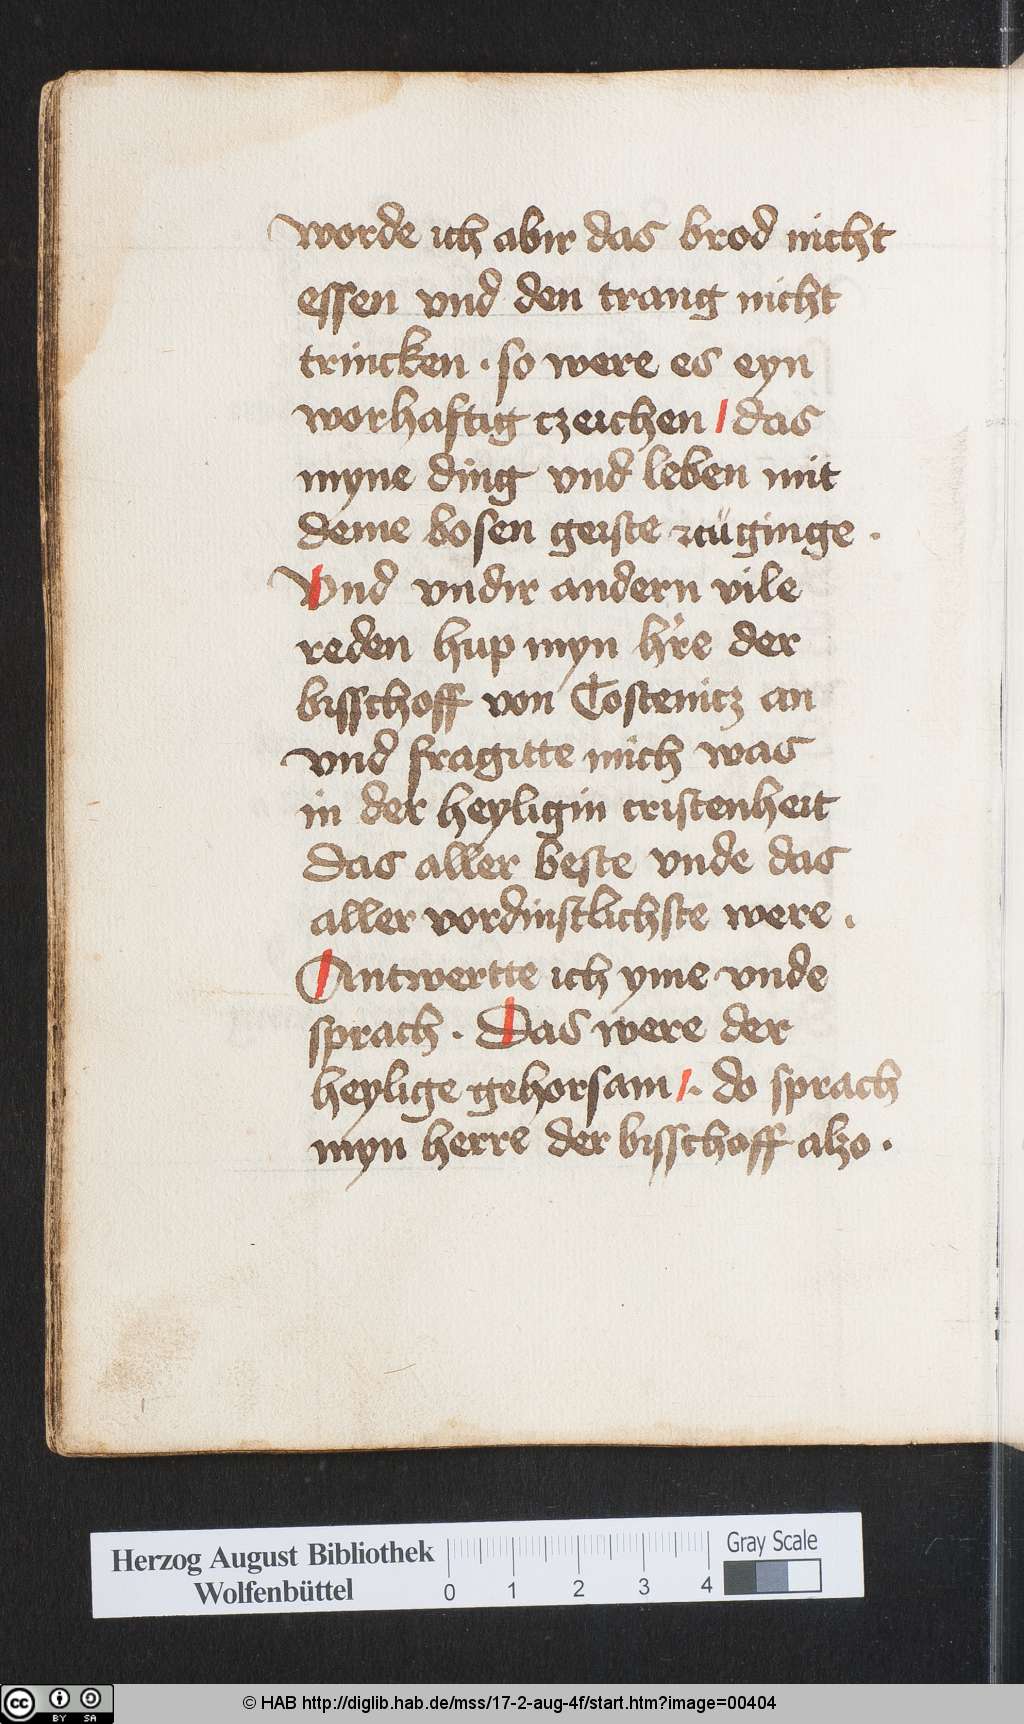 worde ich abir das brod nicht
essen vnd den trang nicht
trincken · so were es eyn
worhaftig czeichen | das
myne ding vnd leben mit
deme bosen geiste zcuginge ·
Vnd vndir andern vile
reden hup myn h're der
bisschoff von Costenicz an
vnd fragitte mich was
in der heyligin cristenheit
das aller beste vnde das
aller vordinstlichste were ·
Antwertte ich yme vnde
sprach · Das were der
heylige gehorsam · do sprach
myn herre der bisschoff alzo ·
Herzog August Bibliothek
Wolfenbüttel
0 1 2 3 4
Gray Scale
cc BY SA
© HAB http://diglib.hab.de/mss/17-2-aug-4f/start.htm?image=00404